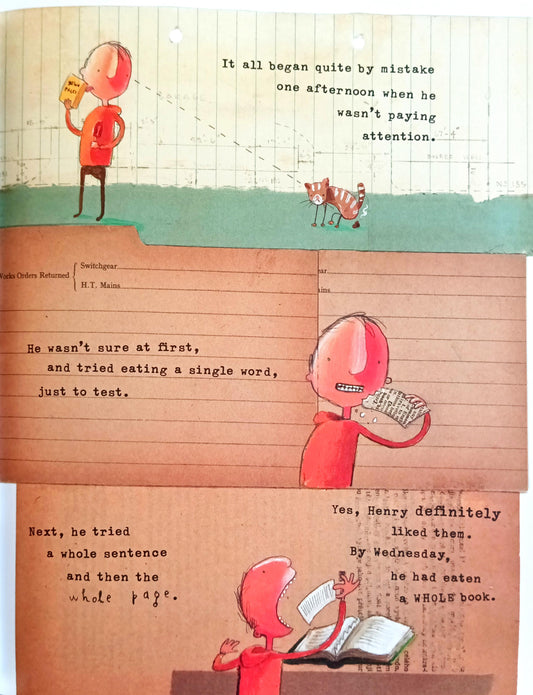 It all began quite by mistake
one afternoon when he
wasn't paying
attention.
Works Orders Returned
Switchgear
H.T. Mains
He wasn't sure at first,
and tried eating a single word,
just to test.
Next, he tried
a whole sentence
and then the
whole page.
Yes, Henry definitely
liked them.
By Wednesday,
he had eaten
a WHOLE book.